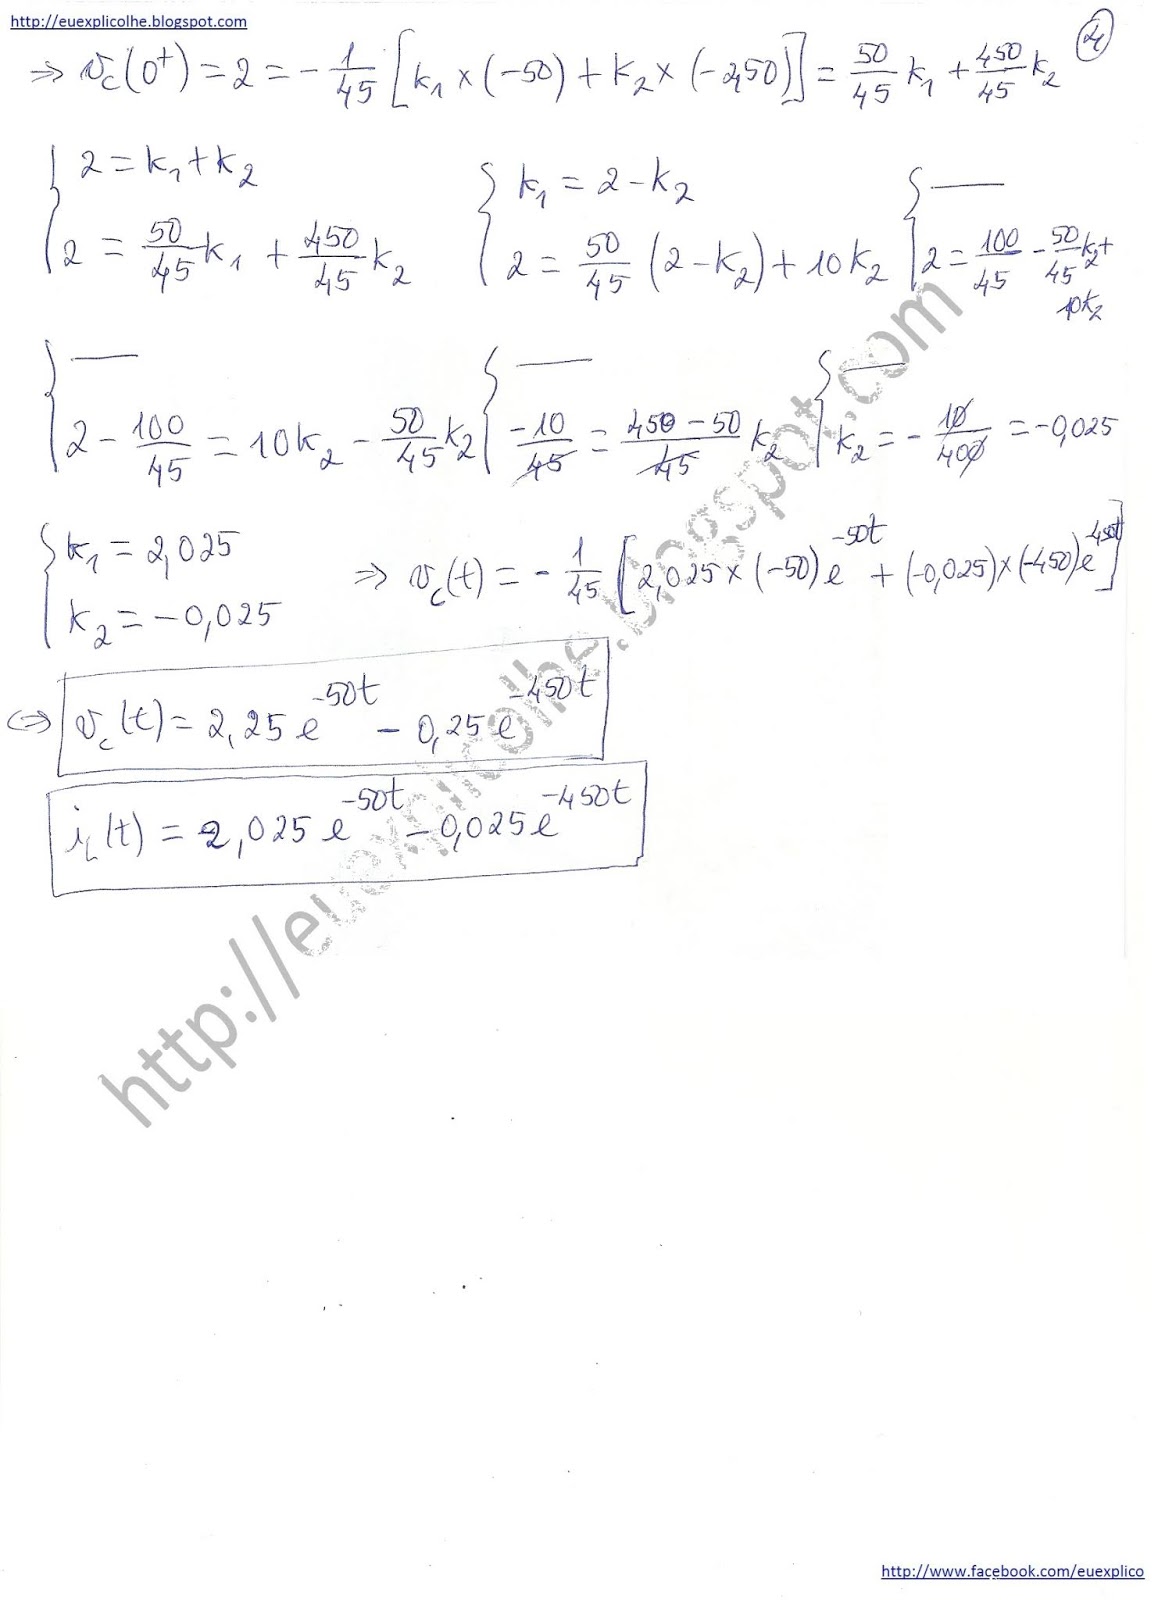 http://euexplicolhe.blogspot.com
⇒ v_c(0⁺) = 2 = -1/45 [k₁ × (-50) + k₂ × (-450)] = 50/45 k₁ + 450/45 k₂
{ 2 = k₁ + k₂ { k₁ = 2 - k₂ { ———
{ 2 = 50/45 k₁ + 450/45 k₂ { 2 = 50/45 (2 - k₂) + 10k₂ { 2 = 100/45 - 50/45 k₂ + 10k₂
{ ——— { ——— { ———
{ 2 - 100/45 = 10k₂ - 50/45 k₂ { -10/45 = 450 - 50/45 k₂ { k₂ = - 10/400 = -0,025
{ k₁ = 2,025
{ k₂ = -0,025 ⇒ v_c(t) = -1/45 [2,025 × (-50) e^-50t + (-0,025) × (-450) e^-450t]
⇔ v_c(t) = 2,25 e^-50t - 0,25 e^-450t
i_L(t) = 2,025 e^-50t - 0,025 e^-450t
http://euexplicolhe.blogspot.com
http://www.facebook.com/euexplico